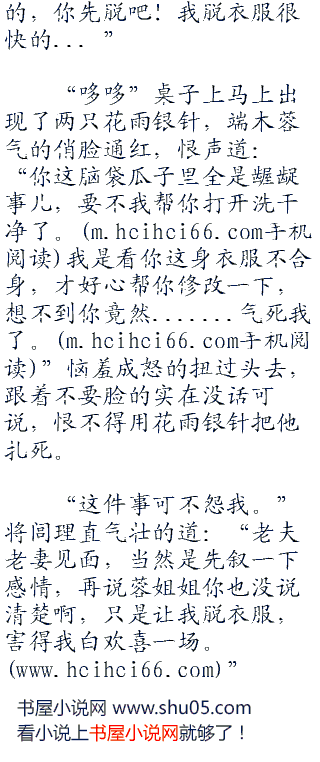 的，你先脱吧！我脱衣服很
快的... ”
“哆哆”桌子上马上出
现了两只花雨银针，端木蓉
气的俏脸通红，恨声道：
“你这脑袋瓜子里全是龌龊
事儿，要不我帮你打开洗干
净了。(m.hcihci66.com手机
阅读)我是看你这身衣服不合
身，才好心帮你修改一下，
想不到你竟然.......气死我
了。(m.hcihci66.com手机阅
读)”恼羞成怒的扭过头去，
跟着不要脸的实在没话可
说，恨不得用花雨银针把他
扎死。
“这件事可不怨我。”
将闾理直气壮的道：“老夫
老妻见面，当然是先叙一下
感情，再说蓉姐姐你也没说
清楚啊，只是让我脱衣服，
害得我白欢喜一场。
(www.hcihci66.com)”
书屋小说网 www.shu05.com
看小说上书屋小说网就够了！